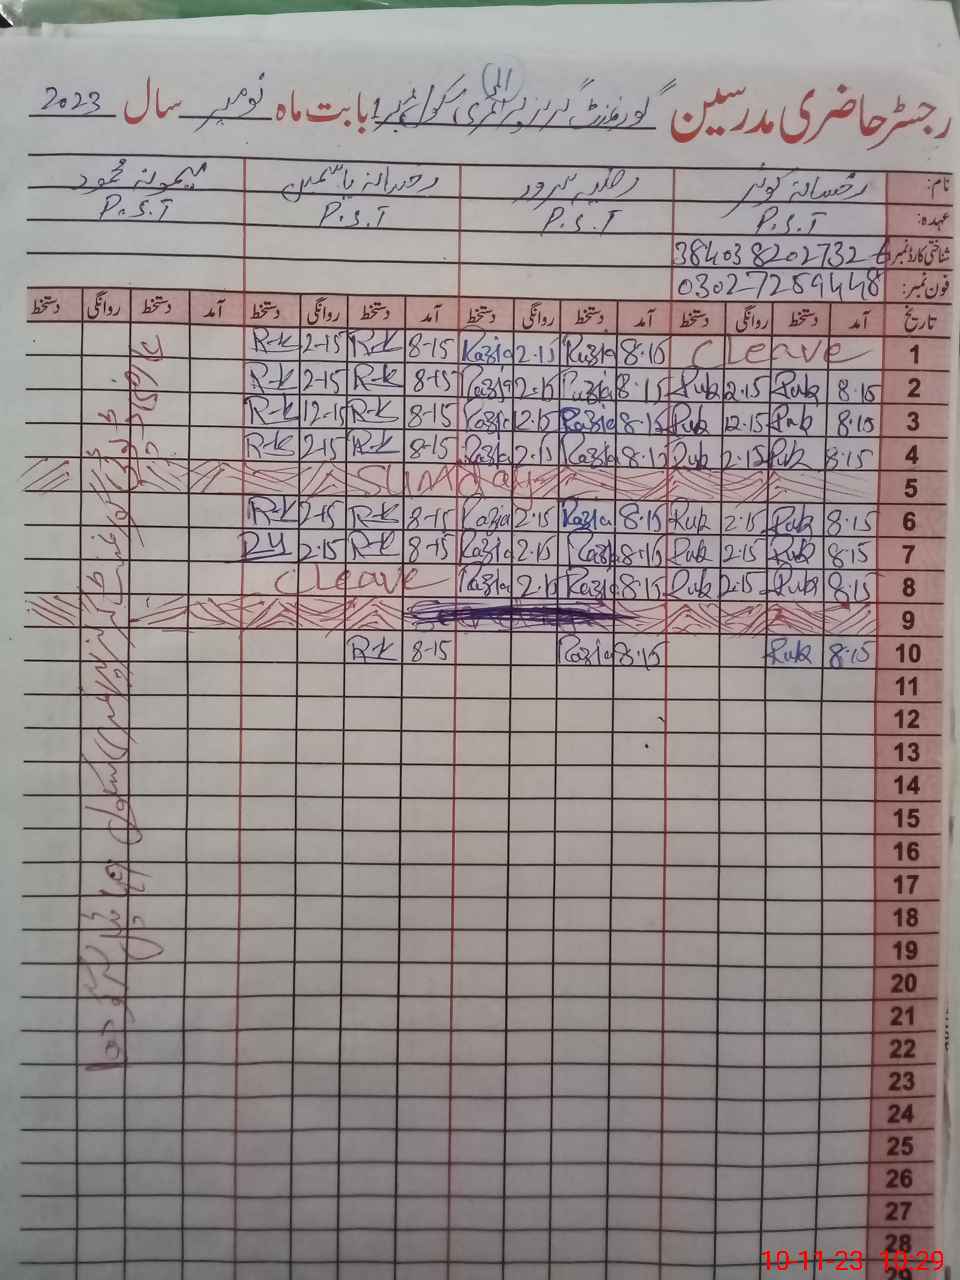 رجسٹر حاضری مدرسین گورنمنٹ گرلز پرائمری سکول نمبر 1 بابت ماہ نومبر سال 2023
نام: رخسانہ کوثر رضیہ سرور رخسانہ یاسمین میمونہ محمود
عہدہ: P.S.T P.S.T P.S.T P.S.T
شناختی کارڈ نمبر: 384038202732 6
فون نمبر: 03027289448
تاریخ آمد دستخط روانگی دستخط آمد دستخط روانگی دستخط آمد دستخط روانگی دستخط آمد دستخط روانگی دستخط
1 C Leave 8-15 Razia 2-15 Razia 8-15 R-K 2-15 R-K
2 8-15 Ruk 2-15 Ruk 8-15 Razia 2-15 Razia 8-15 R-K 2-15 R-K
3 8-15 Ruk 12-15 Ruk 8-15 Razia 12-15 Razia 8-15 R-K 12-15 R-K
4 8-15 Ruk 2-15 Ruk 8-15 Razia 2-15 Razia 8-15 R-K 2-15 R-K
5 Sunday
6 8-15 Ruk 2-15 Ruk 8-15 Razia 2-15 Razia 8-15 R-K 2-15 R-K
7 8-15 Ruk 2-15 Ruk 8-15 Razia 2-15 Razia 8-15 R-K 2-15
8 8-15 Ruk 2-15 Ruk 8-15 Razia 2-15 Razia C Leave
9
10 8-15 Ruk 8-15 Razia 8-15 R-K
11
12
13
14
15
16
17
18
19
20
21
22
23
24
25
26
27
28
29
10-11-23 10:29